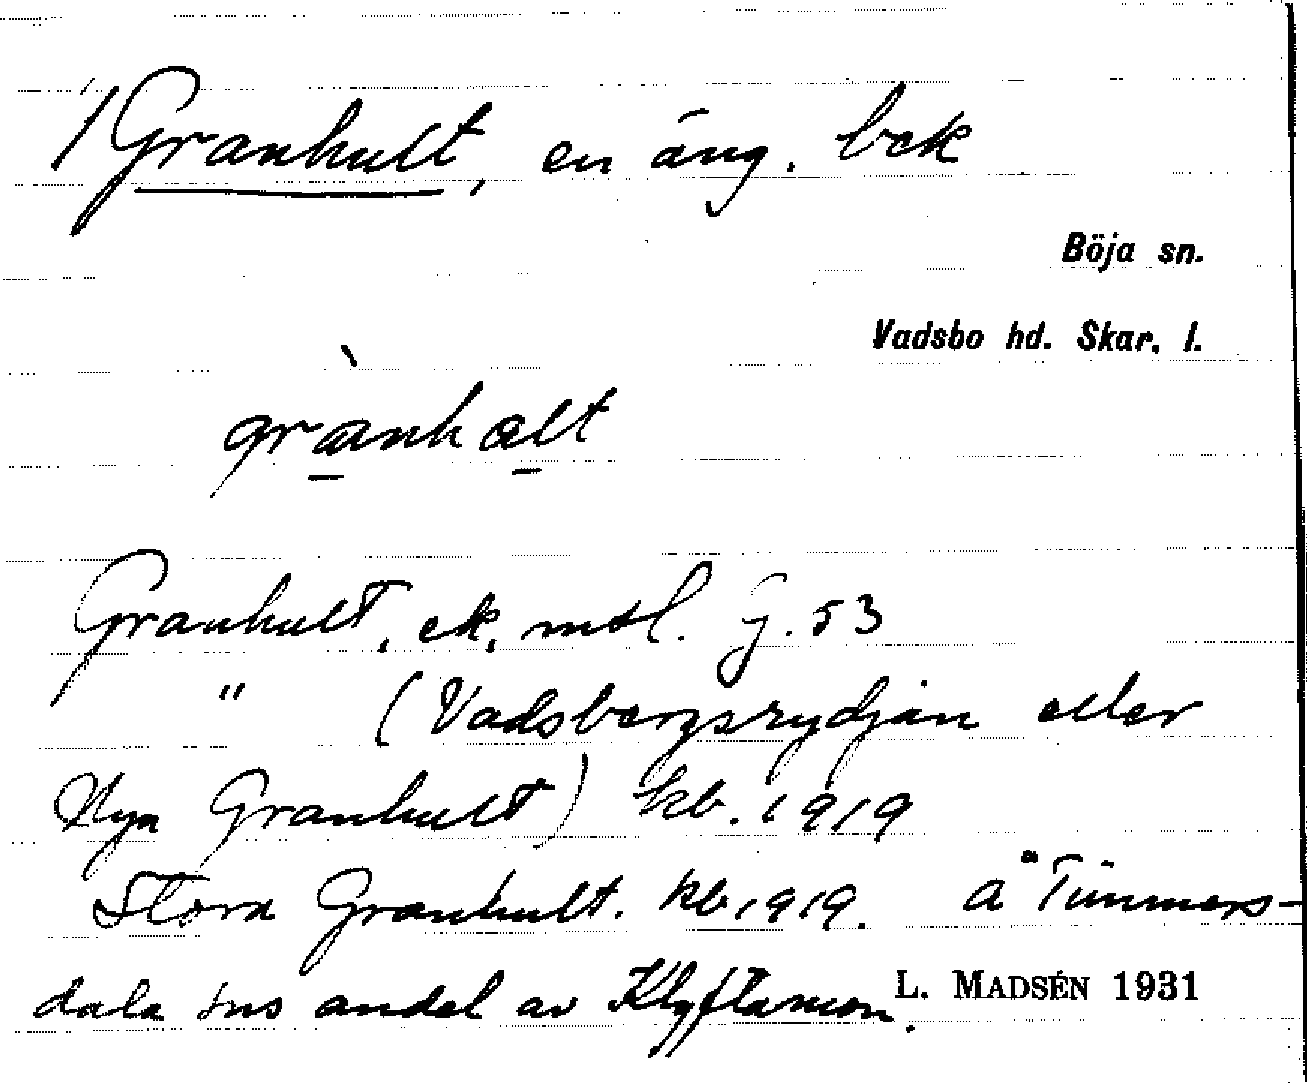 1/ Granhult, en äng. bck
Böja sn.
Vadsbo hd. Skar. l.
grànhalt
Granhult, ek, mtl. j. 53
" (Vadsbergsrydjan eller
Nya Granhult) kb. 1919
Stora Granhult. kb. 1919. å Timmers-
dala sns andel av Klyftamon.
L. MADSÉN 1931